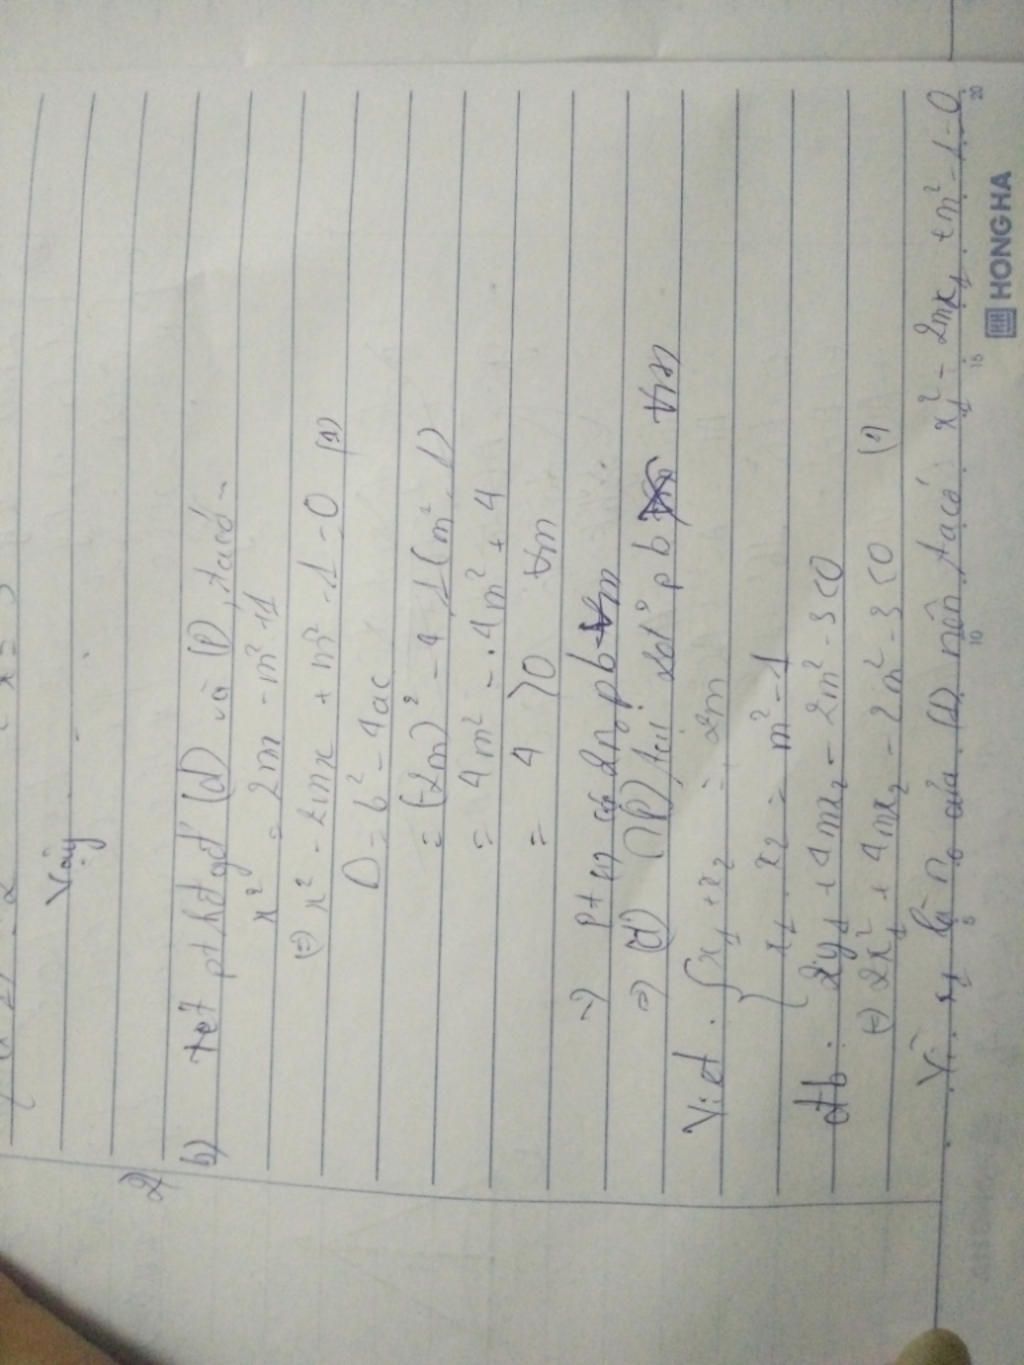 Vậy
2)
b) Xét pt hđgđ (d) và (P), ta có
x² = 2mx - m² + 1
(=) x² - 2mx + m² - 1 = 0 (1)
Δ = b² - 4ac
= (-2m)² - 4.1(m² - 1)
= 4m² - 4m² + 4
= 4 > 0 ∀m
=) pt (1) có 2 no pb ∀m
=) (d) ∩ (P) tại 2 đ' pb ∀m
Viet: { x₁ + x₂ = 2m
x₁ . x₂ = m² - 1
đb: 2y₁ + 4mx₂ - 2m² - 3 < 0
(=) 2x₁² + 4mx₂ - 2m² - 3 < 0 (*)
Vì x₁ là no của (1) nên ta có: x₁² - 2mx₁ + m² - 1 = 0
5 10 15 20
HONG HA